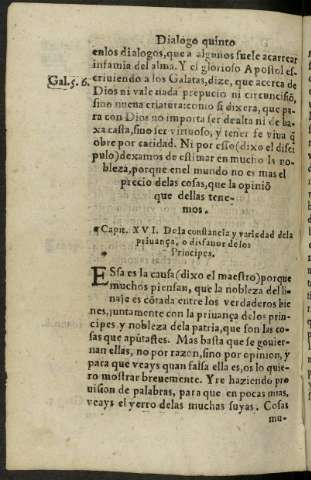 Dialogo quinto
enlos dialogos, que a algunos suele acarrear
infamia del alma. Y el glorioso Apostol es-
Gal. 5. 6. criuiendo a los Galatas, dize, que acerca de
Dios ni vale nada prepucio ni circuncisiõ,
sino nueua criatura: como si dixera, que pa-
ra con Dios no importa ser de alta ni de ba-
xa casta, sino ser virtuoso, y tener fe viua q̃
obre por caridad. Ni por esso (dixo el disci
pulo) dexamos de estimar en mucho la no-
bleza, porque enel mundo no es mas el
precio delas cosas, que la opiniõ
que dellas tene-
mos.
Capit. XVI. De la constancia y variedad dela
priuança, o disfauor de los
Principes.
ESsa es la causa (dixo el maestro) porque
muchos piensan, que la nobleza del li-
naje es cõtada entre los verdaderos bie
nes, juntamente con la priuança delos prin-
cipes y nobleza dela patria, que son las co-
sas que apũtastes. Mas basta que se gouier-
nan ellas, no por razon, sino por opinion, y
para que veays quan falsa ella es, os lo quie-
ro mostrar breuemente. Yre haziendo pro
uision de palabras, para que en pocas mias,
veays el yerro delas muchas suyas. Cosas
mu-